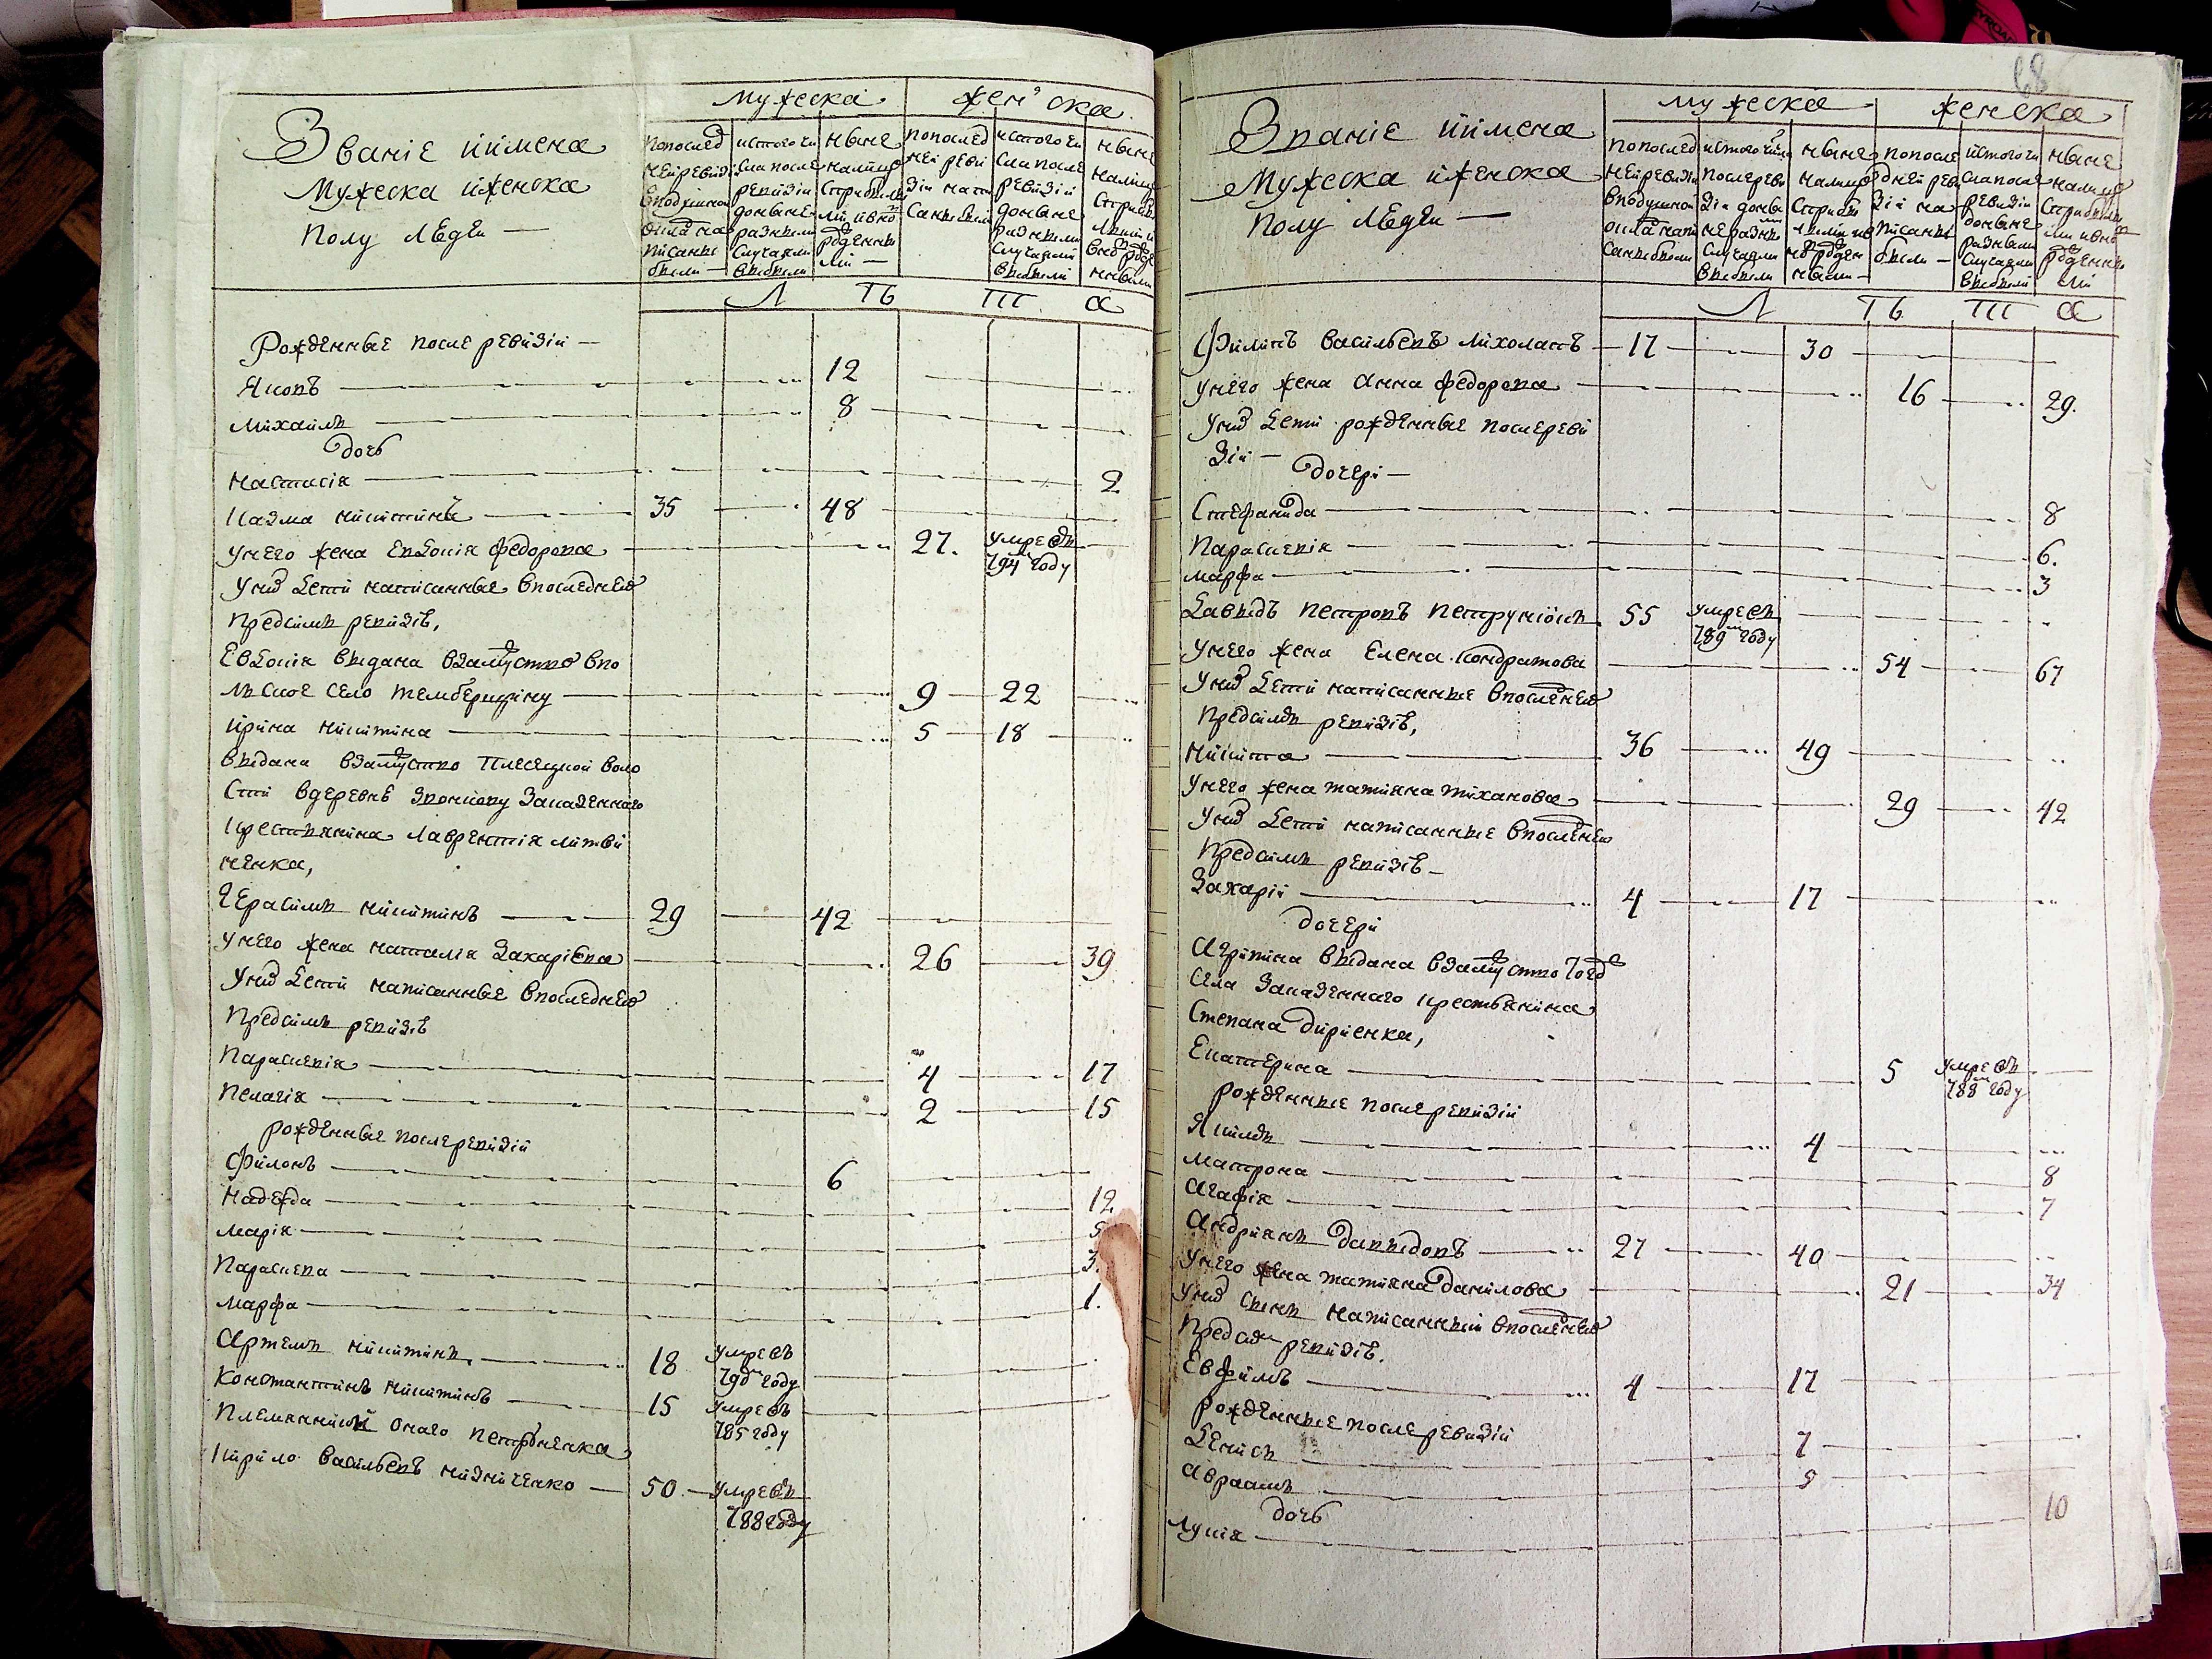 Званіе иимена
Мужеска иженска
полу людеи —
мужеска
женска
попослед
ней ревизіи
вподушной
окладъ на
писаны
были —
истого чи
сла после
ревизіи
доныне
разными
случаями
выбыли
ныне
налицо
сприбылы
ми ивно
рожденны
ми —
попослед
ней реви
зіи напи
саны были
истого чи
сла после
ревизіи
доныне
разными
случаями
выбыли
ныне
налицо
сприбы
лыми и
вно рожде
ными
Л Ѣ Т А
Рожденные после ревизіи —
Яковъ 12
Михаилъ 8
дочь
Настасія 2
Казма Никитинъ 35 48
Унего жена Евдокія Федорова 27. умре въ
794м году
Уних дети написанные впоследнею
предсимъ ревизію,
Евдокія выдана взамужство впо
лское село
9 22
Ирина Никитина 5 18
выдана взамужство Плесецкой воло
сти вдеревню Казенного
крестянина Лаврентія Литви
ненка,
Герасимъ Никитинъ 29 42
Унего жена Наталія Захаріева 26 39
Уних дети написанные впоследнею
предсимъ ревизію
Параскевія 4 17
Пелагія 2 15
рожденные после ревизіи
Филонъ 6
Надежда 12
Марія
Параскева 3.
Марфа 1.
Артемъ Никитинъ 18 умре въ
790м году
Константинъ Никитинъ 15 умре въ
785 году
Племянники онаго Петрѣненка
Кирило Васильевъ Низниченко 50. умре въ
788 году
68
Званіе иимена
Мужеска иженска
полу людеи —
мужеска
женска
попослед
ней ревизіи
вподушной
окладъ напи
саны были
истого числа
послереви
зіи доны
не разны
случаями
выбыли
ныне
налицо
сприбы
лыми ив
но рожден
ными —
попосле
дней реви
зіи на
писаны
были —
истого чи
сла после
ревизіи
доныне
разными
случаями
выбыли
ныне
налицо
сприбылы
ми ивно
рожденны
ми
Л Ѣ Т А
Филипъ Васильевъ 17 30
Унего жена Анна Федорова 16 29.
Уних дети рожденные послереви
зіи —
дочери —
Стефанида 8
Параскевія 6.
Марфа 3
Давыдъ Петровъ 55 умре въ
789м году
Унего жена Елена Кондратова 54 67
Уних дети написанные впоследнею
предсимъ ревизію,
Никита 36 49
Унего жена Татияна Тиханова 29 42
Уних дети написанные впоследнею
предсимъ ревизію —
Захарій 4 17
дочери
Агрипина выдана взамужство тогож
села Казенного крестьянина
Степана
Екатерина 5 умре въ
788м году
рожденные после ревизіи
Якимъ 4
Матрона 8
Агафія 7
Андріянъ Давыдовъ 27 40
Унего жена Татияна Данилова 21 34
Уних сынъ написанный впоследнею
предсимъ ревизію.
Евфимъ 4 17
рожденные после ревизіи
Денисъ 7
Авраамъ 5
дочь
Лукія 10